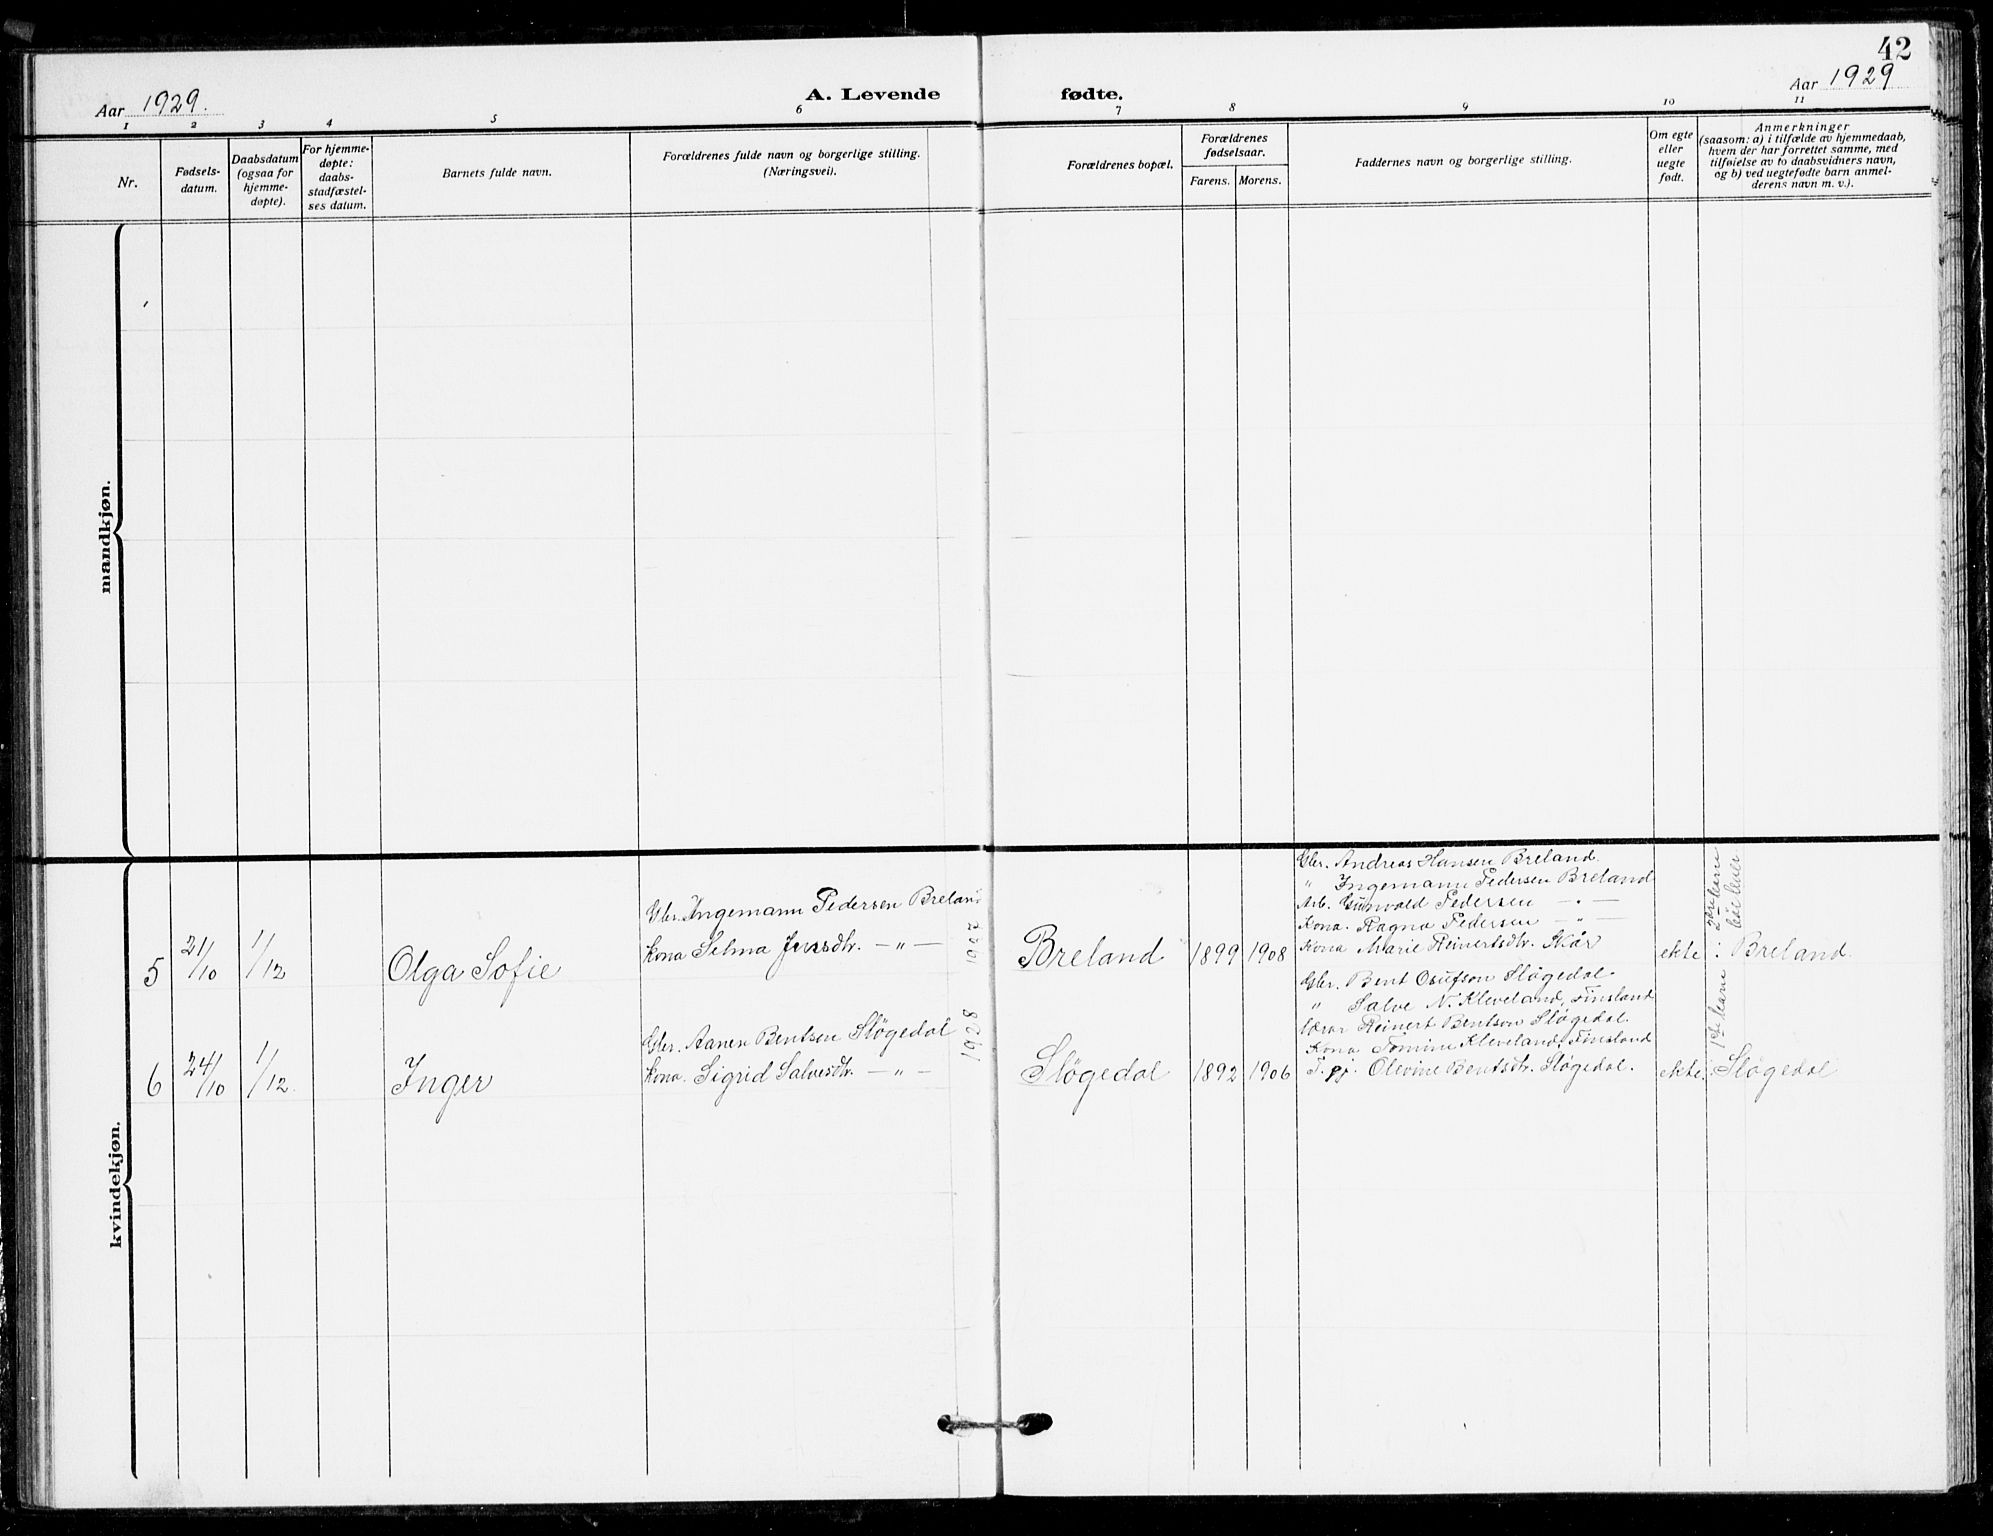 42
Aar 1929.
A. Levende fødte.
Aar 1929
1 2 3 4 5 6 7 8 9 10 11
Nr.
Fødsels-
datum.
Daabsdatum
(ogsaa for
hjemme-
døpte).
For hjemme-
døpte:
daabs-
stadfæstel-
ses datum.
Barnets fulde navn.
Forældrenes fulde navn og borgerlige stilling.
(Næringsvei).
Forældrenes bopæl.
Forældrenes
fødselsaar.
Farens. Morens.
Faddernes navn og borgerlige stilling.
Om egte
eller
uegte
født.
Anmerkninger
(saasom: a) i tilfælde av hjemmedaab,
hvem der har forrettet samme, med
tilføielse av to daabsvidners navn,
og b) ved uegtefødte barn anmel-
derens navn m. v.).
mandkjøn.
kvindekjøn.
5
21/10
1/12
Olga Sofie
Gbr. Ingemann Pedersen Breland
kona Selma Jensdtr. — " —
1922
Breland
1899
1908
Gbr. Andreas Hansen Breland.
" Ingemann Pedersen Breland
Arb. Gunvald Pedersen — " —
Kona. Ragna Pedersen — " —
Kona Marie Reinertsdtr. Skår
ekte
2det barn
Breland.
6
24/10
1/12.
Inger
Gbr. Aanen Bentsen Sløgedal
kona. Sigrid Salvesdtr. — " —
1928
Sløgedal
1892
1906
Gbr. Bent Osufson Sløgedal.
" Salve N. Kleveland, Finsland
Reinert Bentson Sløgedal.
Kona Tomine Kleveland, Finsland
Olevine Bentsdtr. Sløgedal.
ekte.
1ste barn
Sløgedal